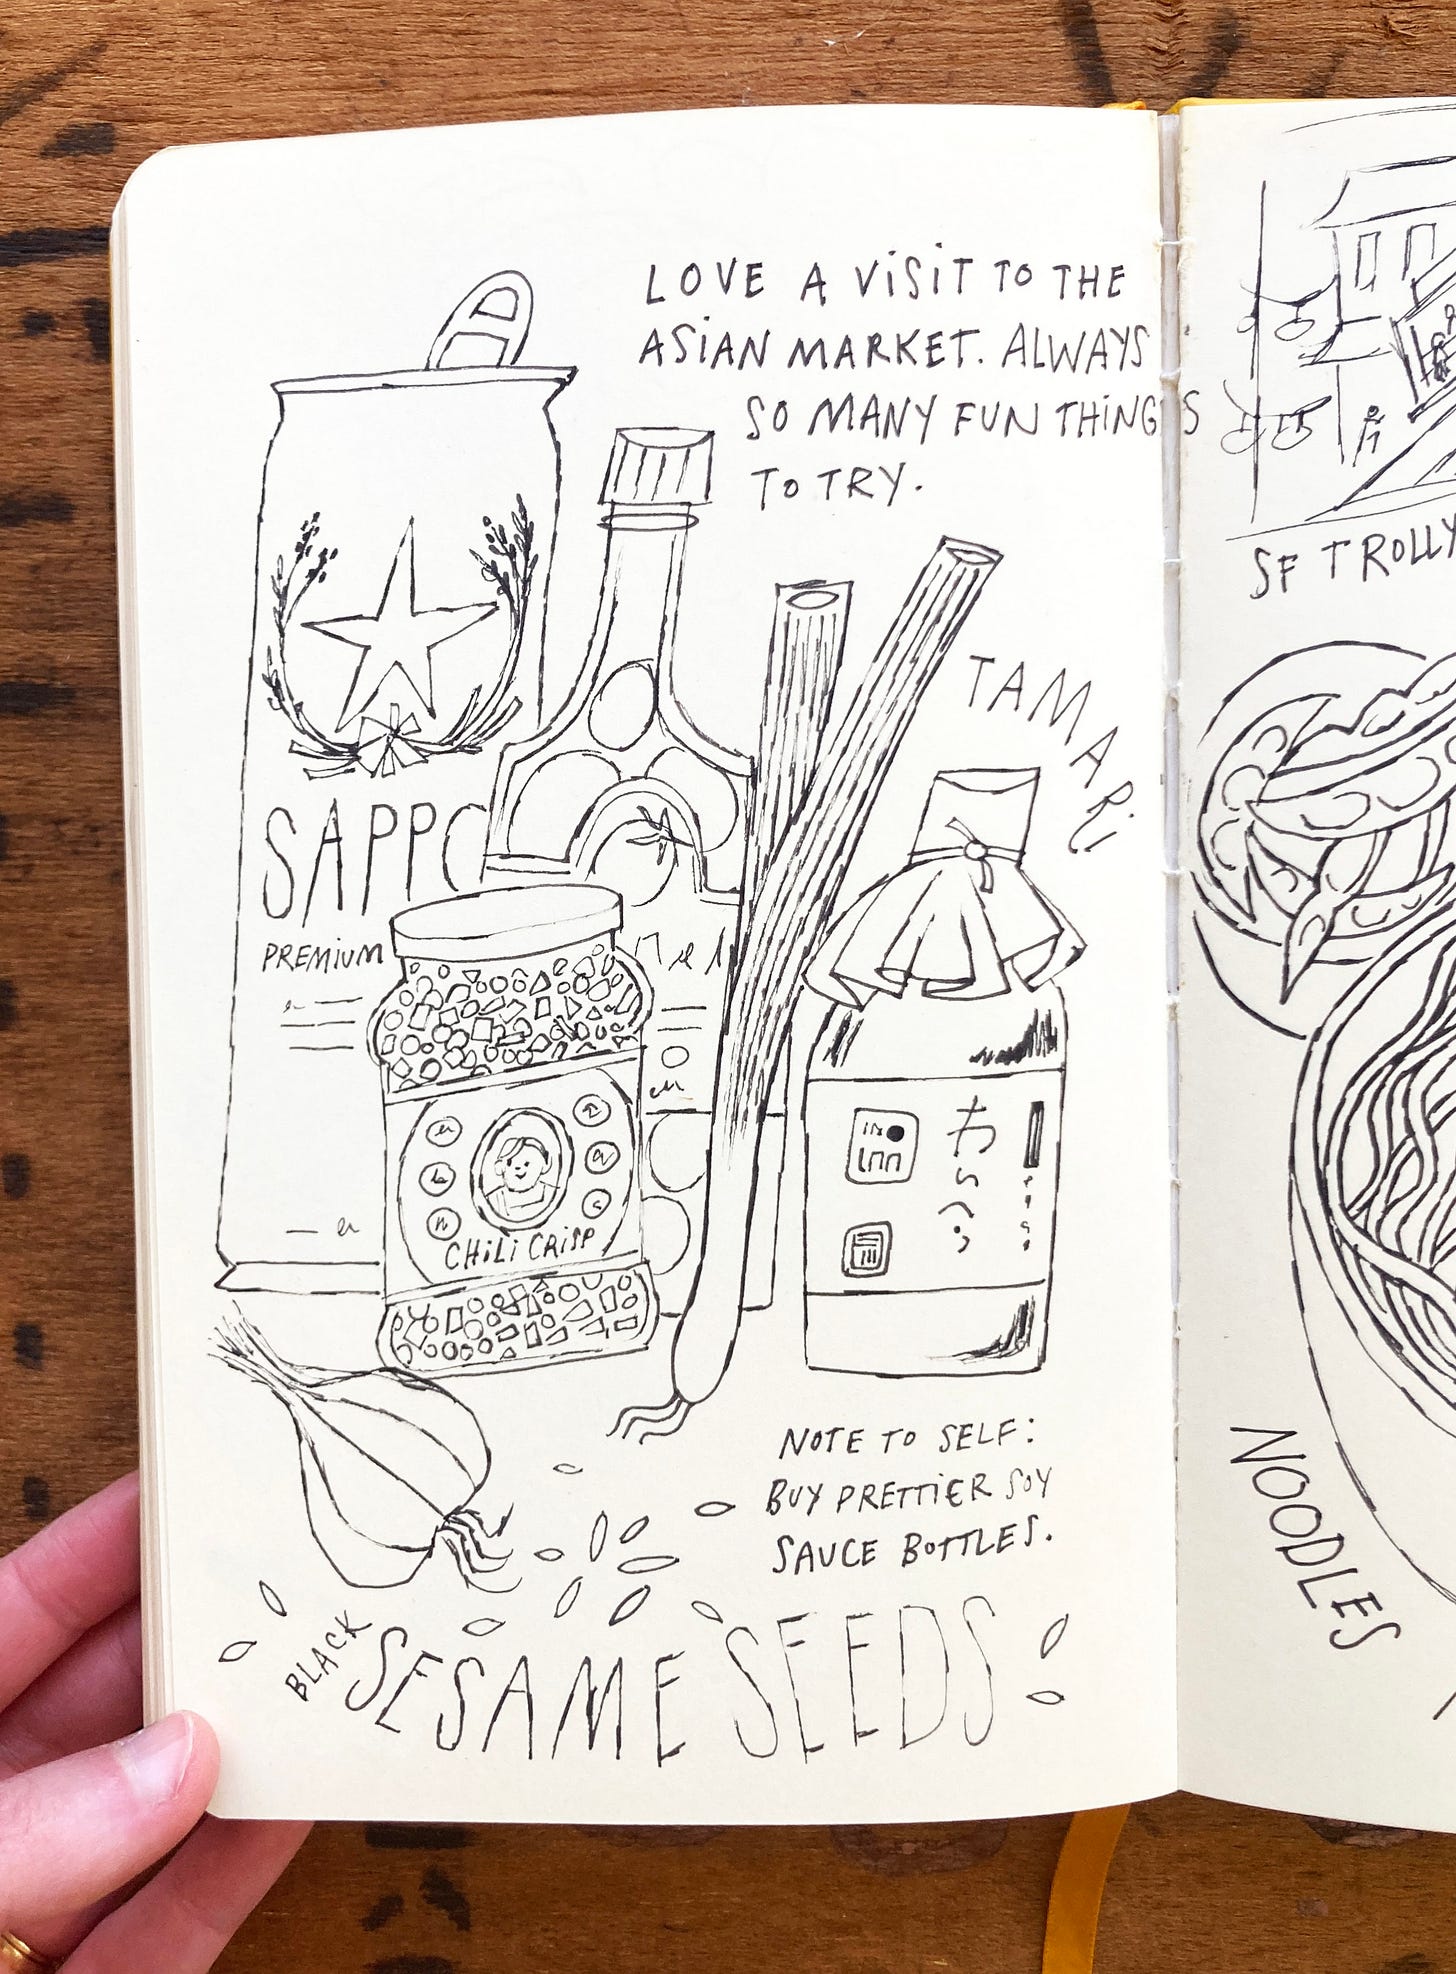 LOVE A VISIT TO THE
ASIAN MARKET. ALWAYS
SO MANY FUN THINGS
TO TRY.
TAMARI
SAPPO
PREMIUM
CHILI CRISP
NOTE TO SELF:
BUY PRETTIER SOY
SAUCE BOTTLES.
BLACK
SESAME SEEDS
SF TROLLY
NOODLES